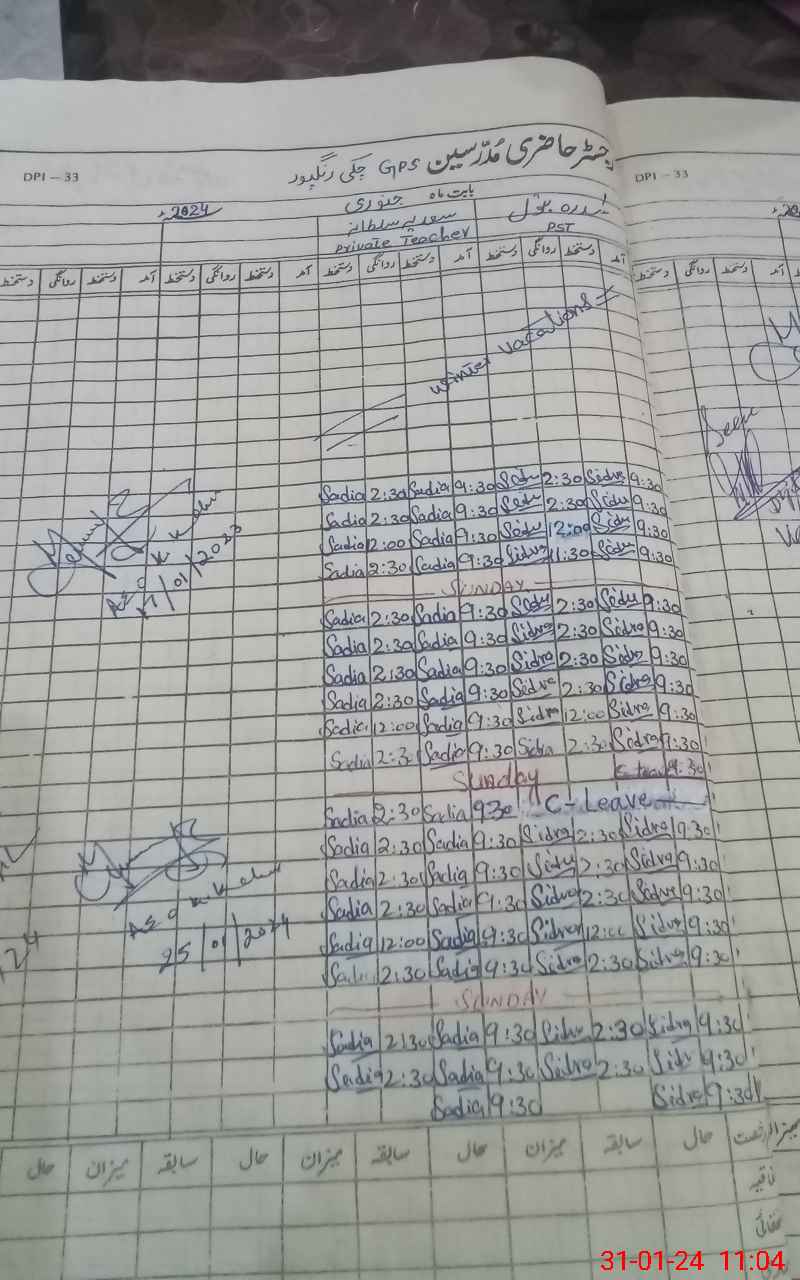 رجسٹر حاضری مُدرّسین GPS چکی رنگپور
DPI – 33
DPI – 33
بابت ماہ جنوری 2024ء
سدرہ بتول سعدیہ سلطانہ
PST Private Teacher
آمد دستخط روانگی دستخط آمد دستخط روانگی دستخط آمد دستخط روانگی دستخط آمد دستخط روانگی دستخط
دستخط روانگی دستخط آمد
Winter Vacations
Sadia 2:30 Sadia 9:30 Sidra 2:30 Sidra 9:30
Sadia 2:30 Sadia 9:30 Sidra 2:30 Sidra 9:30
Sadia 2:00 Sadia 9:30 Sidra 12:00 Sidra 9:30
Sadia 2:30 Sadia 9:30 Sidra 11:30 Sidra 9:30
17/01/2023
SUNDAY
Sadia 2:30 Sadia 9:30 Sidra 2:30 Sidra 9:30
Sadia 2:30 Sadia 9:30 Sidra 2:30 Sidra 9:30
Sadia 2:30 Sadia 9:30 Sidra 2:30 Sidra 9:30
Sadia 2:30 Sadia 9:30 Sidra 2:30 Sidra 9:30
Sadia 12:00 Sadia 9:30 Sidra 12:00 Sidra 9:30
Sadia 2:30 Sadia 9:30 Sidra 2:30 Sidra 9:30
Sunday 9:30
Sadia 2:30 Sadia 9:30 C-Leave
Sadia 2:30 Sadia 9:30 Sidra 2:30 Sidra 9:30
Sadia 2:30 Sadia 9:30 Sidra 2:30 Sidra 9:30
Sadia 2:30 Sadia 9:30 Sidra 2:30 Sidra 9:30
Sadia 12:00 Sadia 9:30 Sidra 12:00 Sidra 9:30
25/01/2024
Sadia 2:30 Sadia 9:30 Sidra 2:30 Sidra 9:30
SUNDAY
Sadia 2:30 Sadia 9:30 Sidra 2:30 Sidra 9:30
Sadia 2:30 Sadia 9:30 Sidra 2:30 Sidra 9:30
Sadia 9:30 Sidra 9:30
میزان رخصت حال سابقہ میزان حال سابقہ میزان حال سابقہ میزان حال
31-01-24 11:04